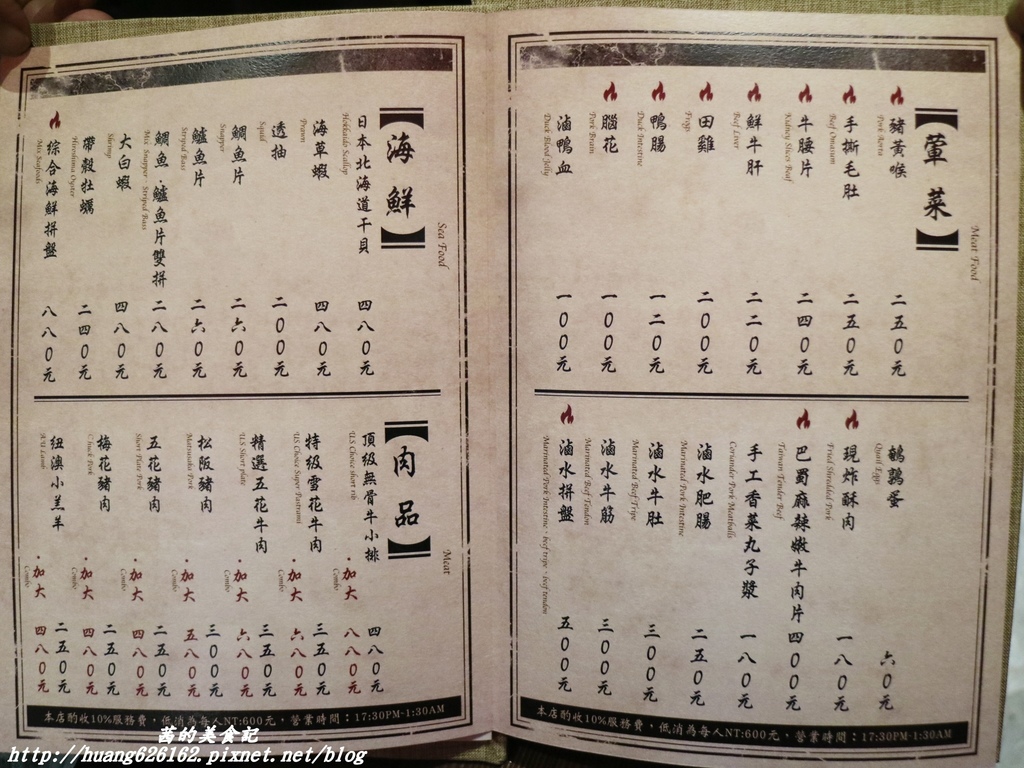 葷菜
Meat Food
豬黃喉
Pork Aorta
二五0元
手撕毛肚
Beef Omasum
二五0元
牛腰片
Kidney Slices Beef
二四0元
鮮牛肝
Beef Liver
二二0元
田雞
Frogs
二00元
鴨腸
Duck Intestine
一二0元
腦花
Pork Brain
一00元
滷鴨血
Duck Blood Jelly
一00元
鵪鶉蛋
Quail Eggs
六0元
現炸酥肉
Fried Shredded Pork
一八0元
巴蜀麻辣嫩牛肉片
Taiwan Tender Beef
四00元
手工香菜丸子漿
Coriander Pork Meatballs
一八0元
滷水肥腸
Marinated Pork Intestine
二五0元
滷水牛肚
Marinated Beef Tripe
三00元
滷水牛筋
Marinated Beef Tendon
三00元
滷水拼盤
Marinated Pork Intestine . beef tripe . beef tendon
五00元
本店酌收10%服務費，低消為每人NT:600元，營業時間：17:30PM-1:30AM
海鮮
Sea Food
日本北海道干貝
Hokkaido Scallop
四八0元
海草蝦
Prawn
四八0元
透抽
Squid
二00元
鯛魚片
Snapper
二六0元
鱸魚片
Striped Bass
二六0元
鯛魚.鱸魚片雙拼
Mix Snapper . Striped Bass
二八0元
大白蝦
Shrimp
四八0元
帶殼牡蠣
Hiroshima Oyster
二四0元
綜合海鮮拼盤
Mix Seafoods
八八0元
肉品
Meat
頂級無骨牛小排
US Choice short rib
四八0元
．加大
八八0元
特級雪花牛肉
US Choice Super Pastrami
三五0元
．加大
Combo
六八0元
精選五花牛肉
US Short plate
三五0元
．加大
Combo
六八0元
松阪豬肉
Matsusaka Pork
三00元
．加大
Combo
五八0元
五花豬肉
Short Plate Pork
二五0元
．加大
Combo
四八0元
梅花豬肉
Chuck Pork
二五0元
．加大
Combo
四八0元
紐澳小羔羊
二五0元
．加大
Combo
四八0元
本店酌收10%服務費，低消為每人NT:600元，營業時間：17:30PM-1:30AM
茜的美食記
http://huang626162.pixnet.net/blog